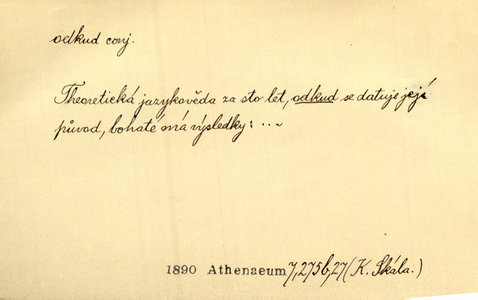 odkud conj.
Theoretická jazykověda za sto let, odkud se datuje její
původ, bohaté má výsledky: ...
1890 Athenaeum 7,275b,27 (K. Skála.)